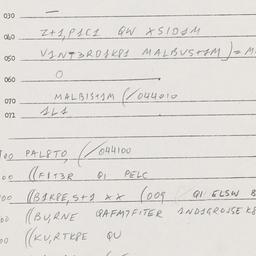 030 —
040 Z+1,P1C1 QW XSID1M
050 V1NT3RD1KP1 MALBVS+1M)=M
060 O
070 MALBIS+1M (/044010
071 1L1
00 PAL8TO, (/044100
00 ((F1T3R Q1 PELC
00 ((B1RPE,S+1 XX (009 Q1 ELSW B
00 ((BU,RNE QAFM7FITER
00 ((KV,RTKPE QU